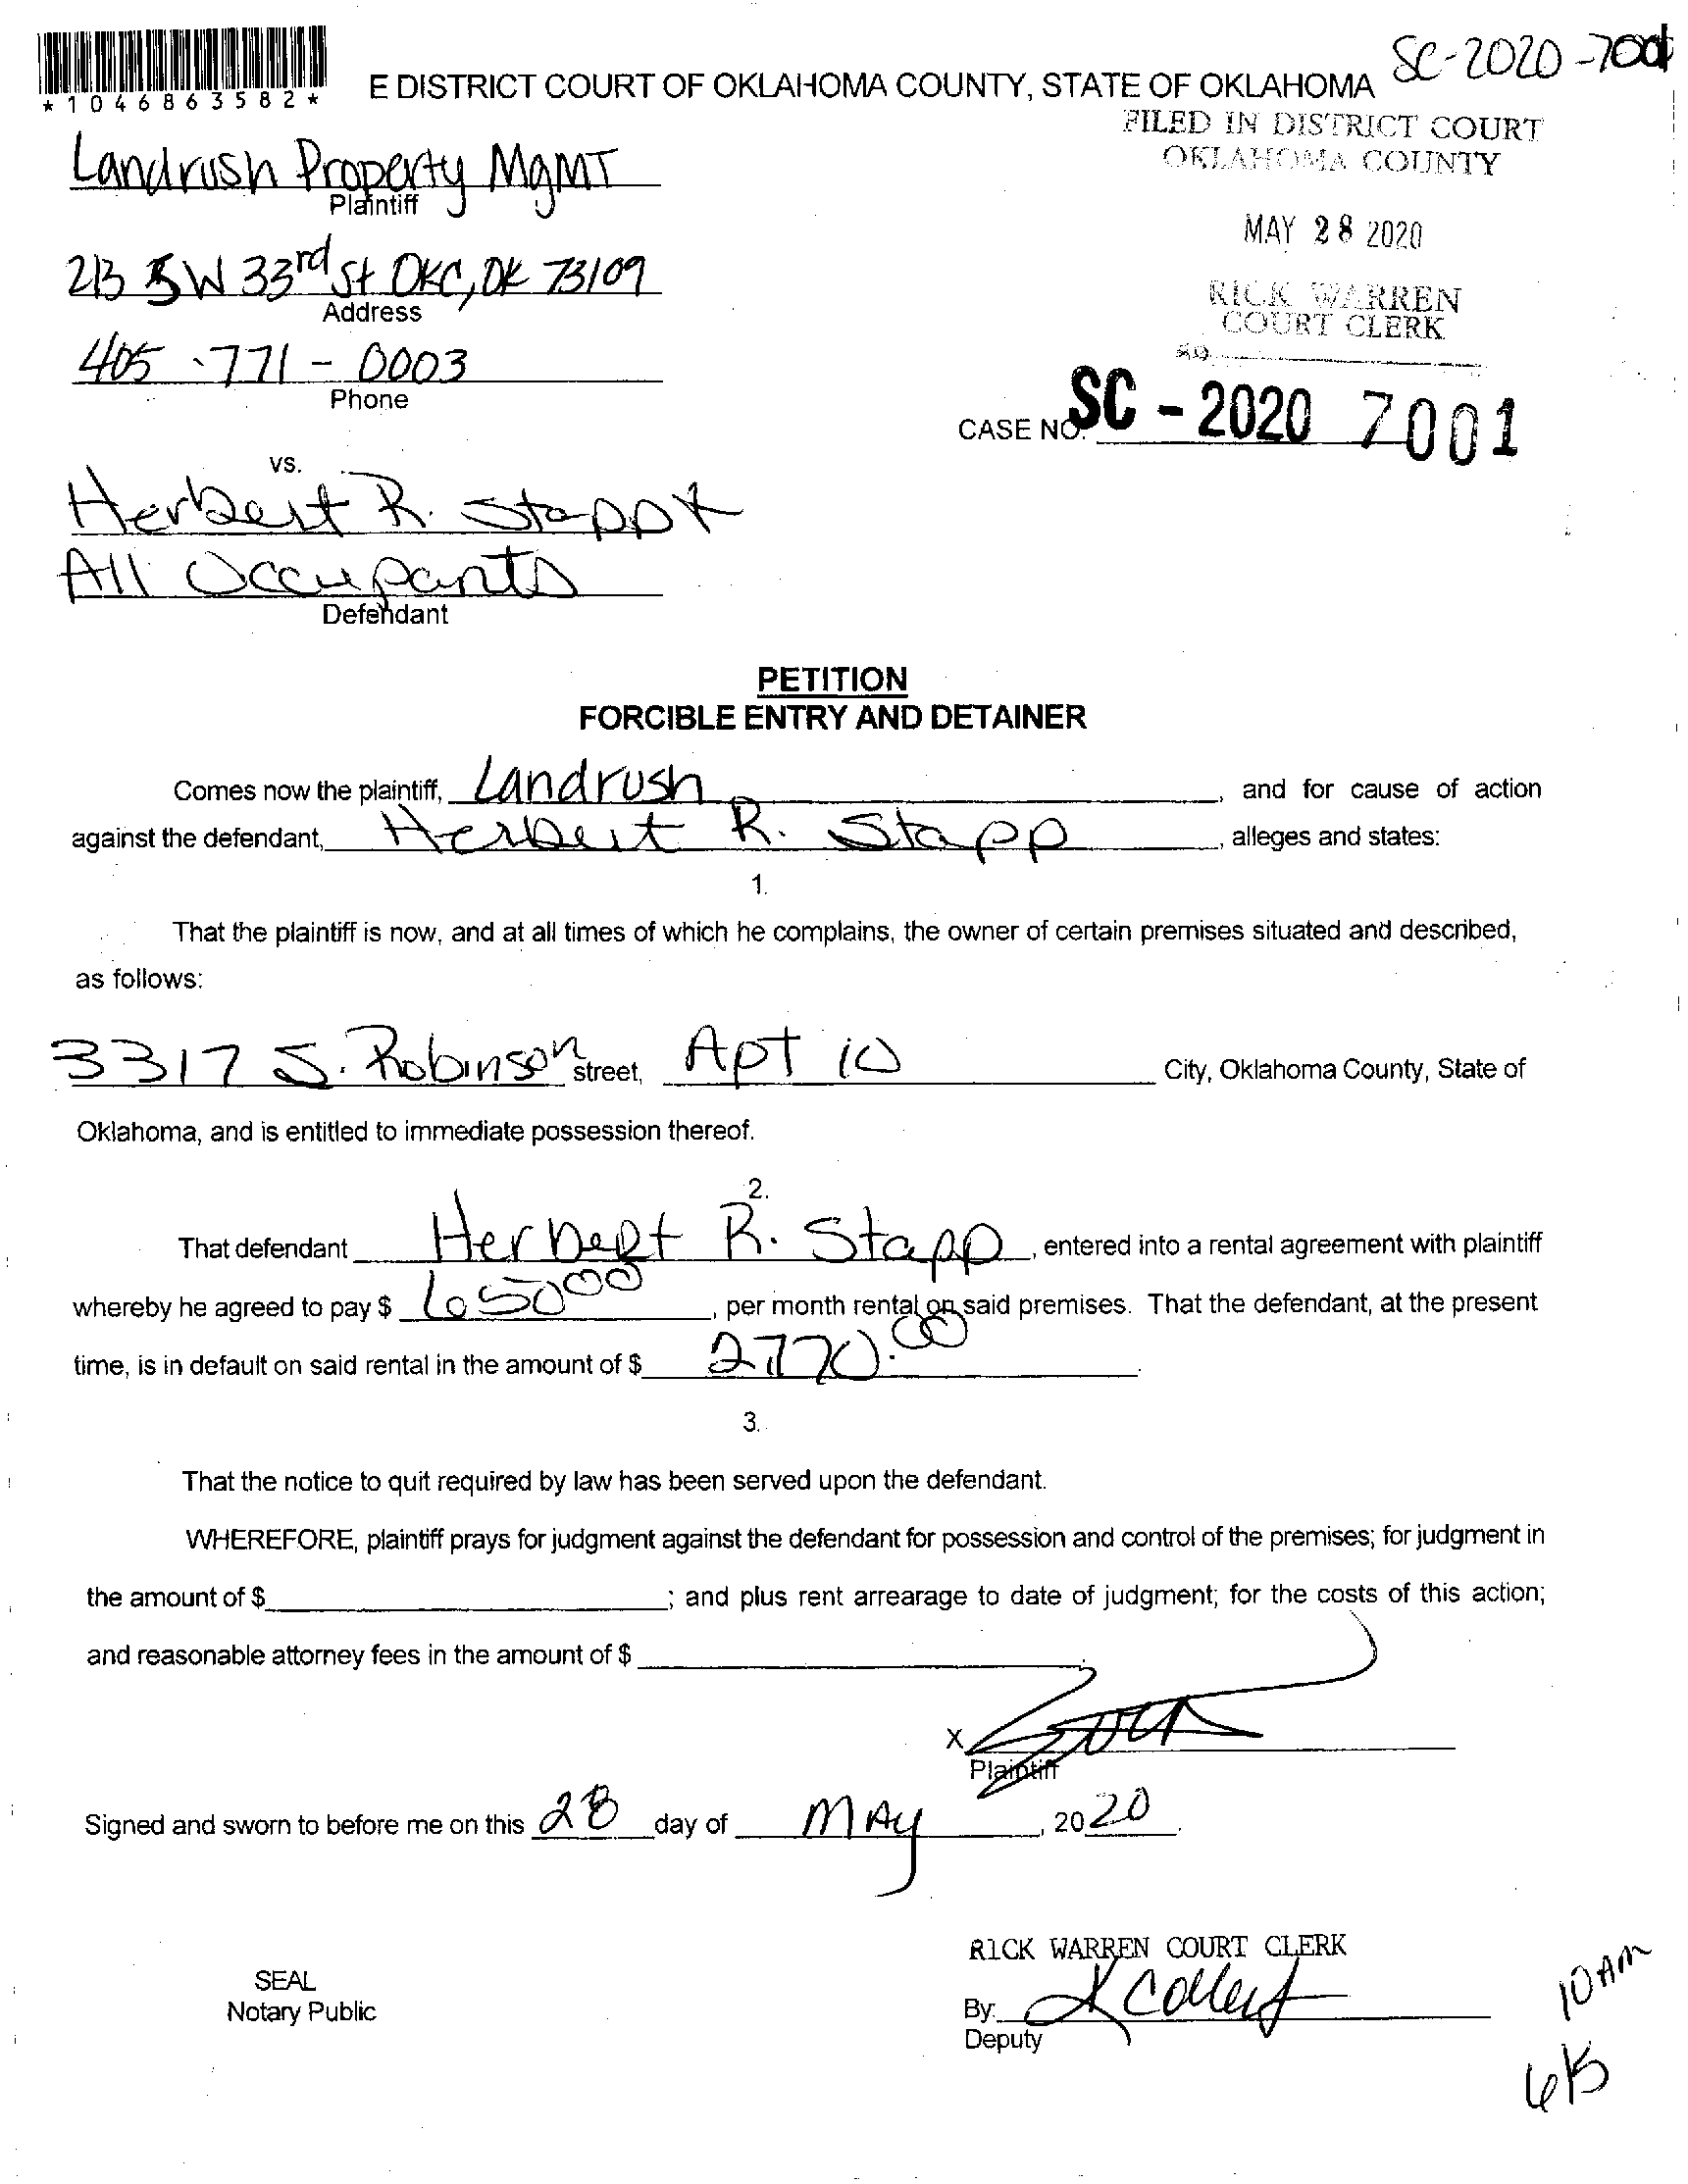 SC-2020-7001
*1046863582*
E DISTRICT COURT OF OKLAHOMA COUNTY, STATE OF OKLAHOMA
FILED IN DISTRICT COURT
OKLAHOMA COUNTY
Landrush Property MgMT
Plaintiff
MAY 28 2020
213 SW 33rd St OKC, OK 73109
Address
RICK WARREN
COURT CLERK
405-771-0003
Phone
CASE NO. SC - 2020 7001
vs.
Herbert R. Stapp &
All Occupants
Defendant
PETITION
FORCIBLE ENTRY AND DETAINER
Comes now the plaintiff, Landrush, and for cause of action
against the defendant, Herbert R. Stapp, alleges and states:
1.
That the plaintiff is now, and at all times of which he complains, the owner of certain premises situated and described,
as follows:
3317 S. Robinson street, Apt 10 City, Oklahoma County, State of
Oklahoma, and is entitled to immediate possession thereof.
2.
That defendant Herbert R. Stapp, entered into a rental agreement with plaintiff
whereby he agreed to pay $ 650 00, per month rental on said premises. That the defendant, at the present
time, is in default on said rental in the amount of $ 2770.00.
3.
That the notice to quit required by law has been served upon the defendant.
WHEREFORE, plaintiff prays for judgment against the defendant for possession and control of the premises; for judgment in
the amount of $; and plus rent arrearage to date of judgment; for the costs of this action;
and reasonable attorney fees in the amount of $
X
Plaintiff
Signed and sworn to before me on this 28 day of MAy, 2020.
RICK WARREN COURT CLERK
SEAL
Notary Public
By:
Deputy
10 AM